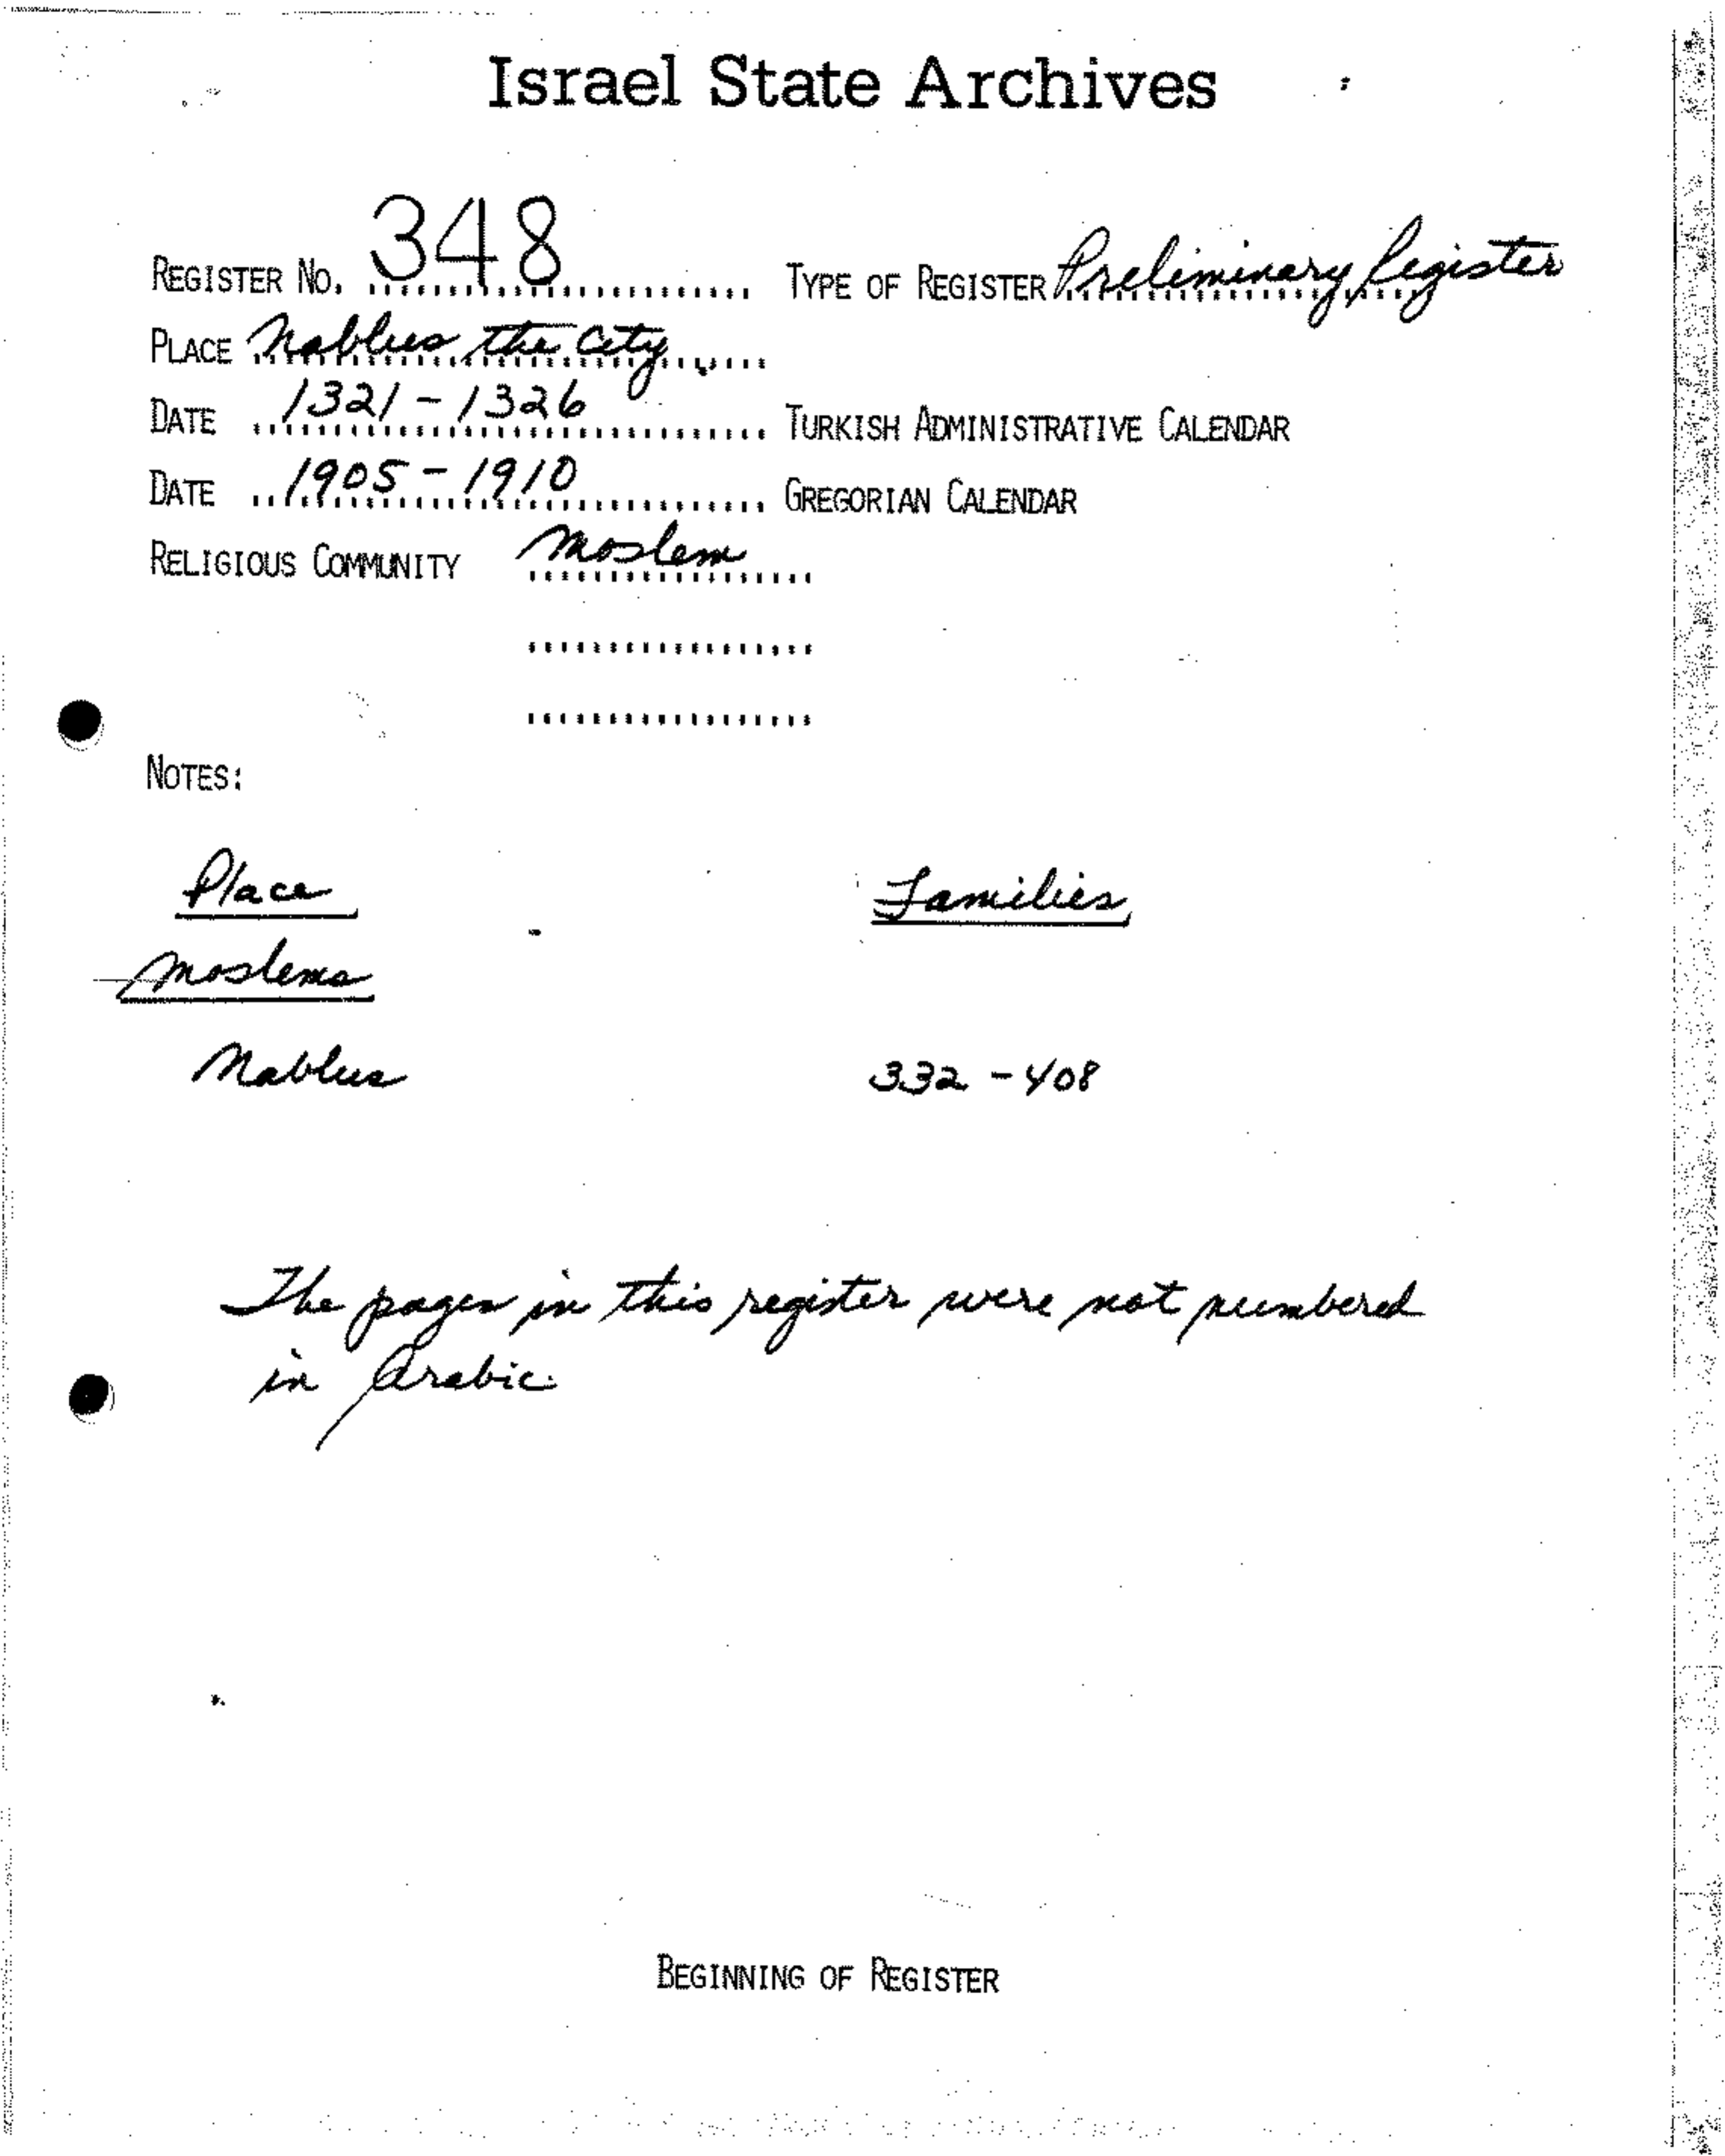 Israel State Archives
REGISTER NO. 348 TYPE OF REGISTER Preliminary Register
PLACE Nablus the City
DATE 1321-1326 TURKISH ADMINISTRATIVE CALENDAR
DATE 1905-1910 GREGORIAN CALENDAR
RELIGIOUS COMMUNITY Moslem
NOTES:
Place Families
Moslems
Nablus 332-408
The pages in this register were not numbered
in Arabic.
BEGINNING OF REGISTER